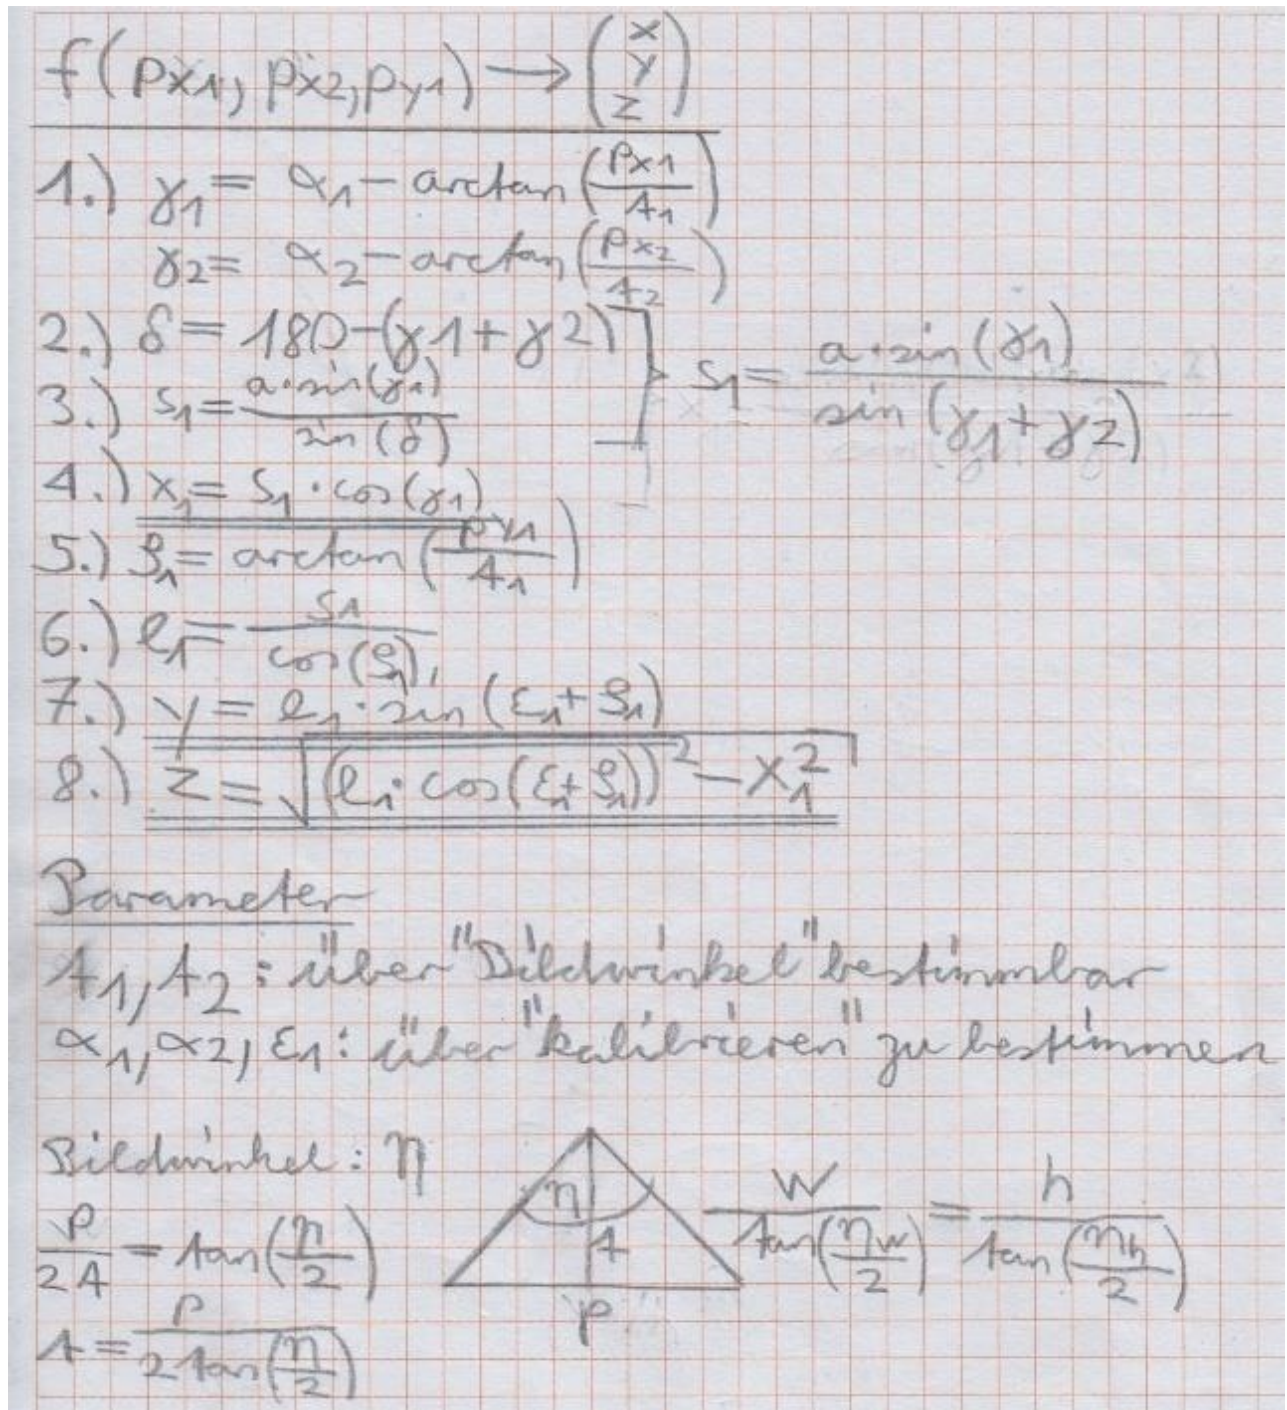 f(px1, px2, py1) → (x y z)
1.) γ1 = α1 − arctan(px1/A1)
γ2 = α2 − arctan(px2/A2)
2.) δ = 180−(γ1+γ2)
3.) s1 = a·sin(γ1)/sin(δ)
s1 = a·sin(γ1)/sin(γ1+γ2)
4.) x1 = s1·cos(γ1)
5.) ϱ1 = arctan(py1/A1)
6.) l1 = s1/cos(ϱ1)
7.) y = l1·sin(ε1+ϱ1)
8.) z = √((l1·cos(ε1+ϱ1))² − x1²)
Parameter
A1, A2: über "Bildwinkel" bestimmbar
α1, α2, ε1: über "kalibrieren" zu bestimmen
Bildwinkel: η
p/2A = tan(η/2)
A = p/2tan(η/2)
η
A
p
w/tan(ηw/2) = h/tan(ηh/2)